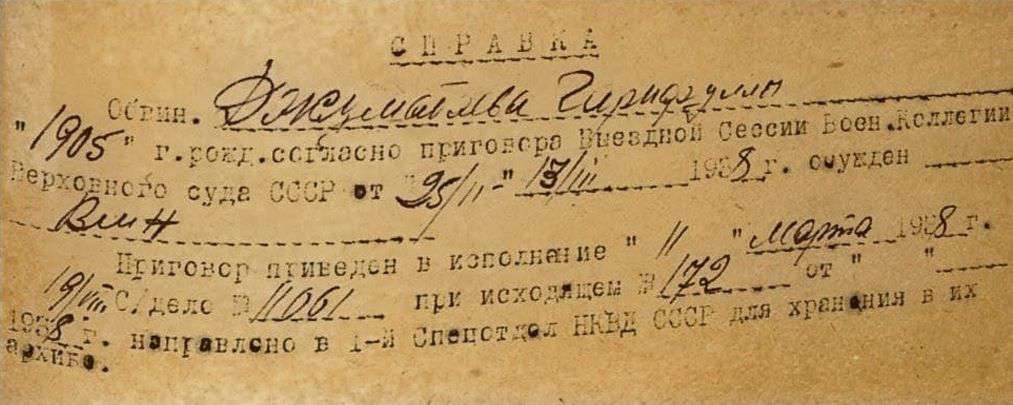 СПРАВКА
Обвин. Джуматаева
"1905" г.рожд.согласно приговора Выездной Сессии Воен.Коллегии
Верховного суда СССР от "25/II-" 13/III 1938 г. осужден
ВМН
Приговор приведен в исполнение " " " марта 1938 г.
С/дело № 11061 при исходящем № 172 от " "
19/VIII 1938 г. направлено в 1-й Спецотдел НКВД СССР для хранения в их
архиве.